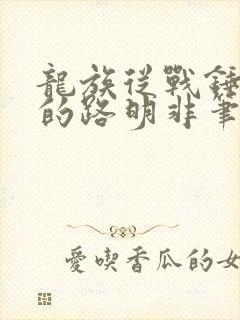 龍族從戰錘
的路明非筆
愛喫香瓜的女